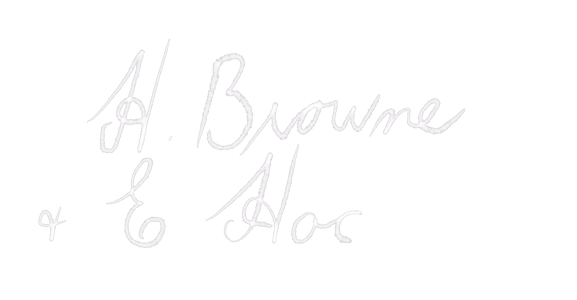 H. Browne
& E Hos